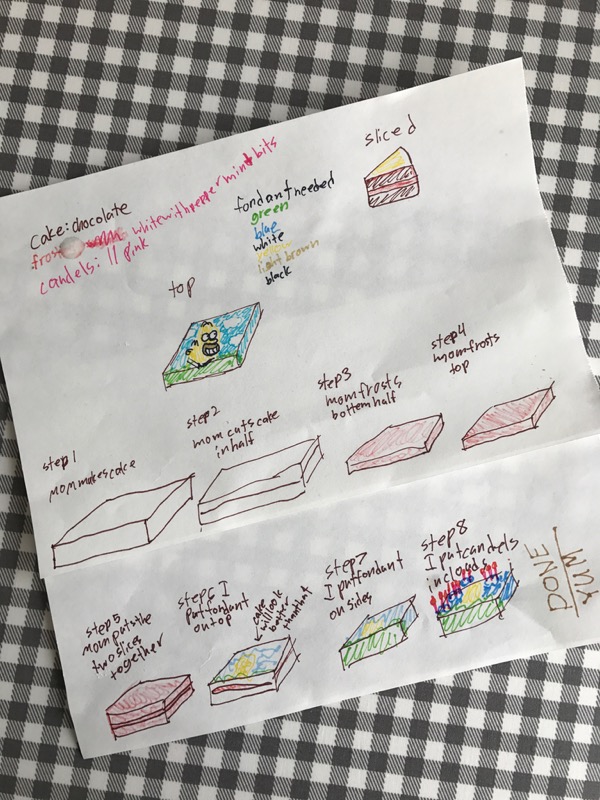 sliced
cake: chocolate
frost white with pepper mint bits
candels: 11 pink
fondant needed
green
blue
white
yellow
light brown
black
top
step 1
Mom makes cake
step 2
mom cuts cake
in half
step 3
mom frosts
bottem half
step 4
mom frosts
top
step 5
mom puts the
two slices
together
step 6 I
put fondant
on top
cake
will look
better
than that
step 7
I put fondant
on sides
step 8
I put candels
in clouds
DONE
YUM